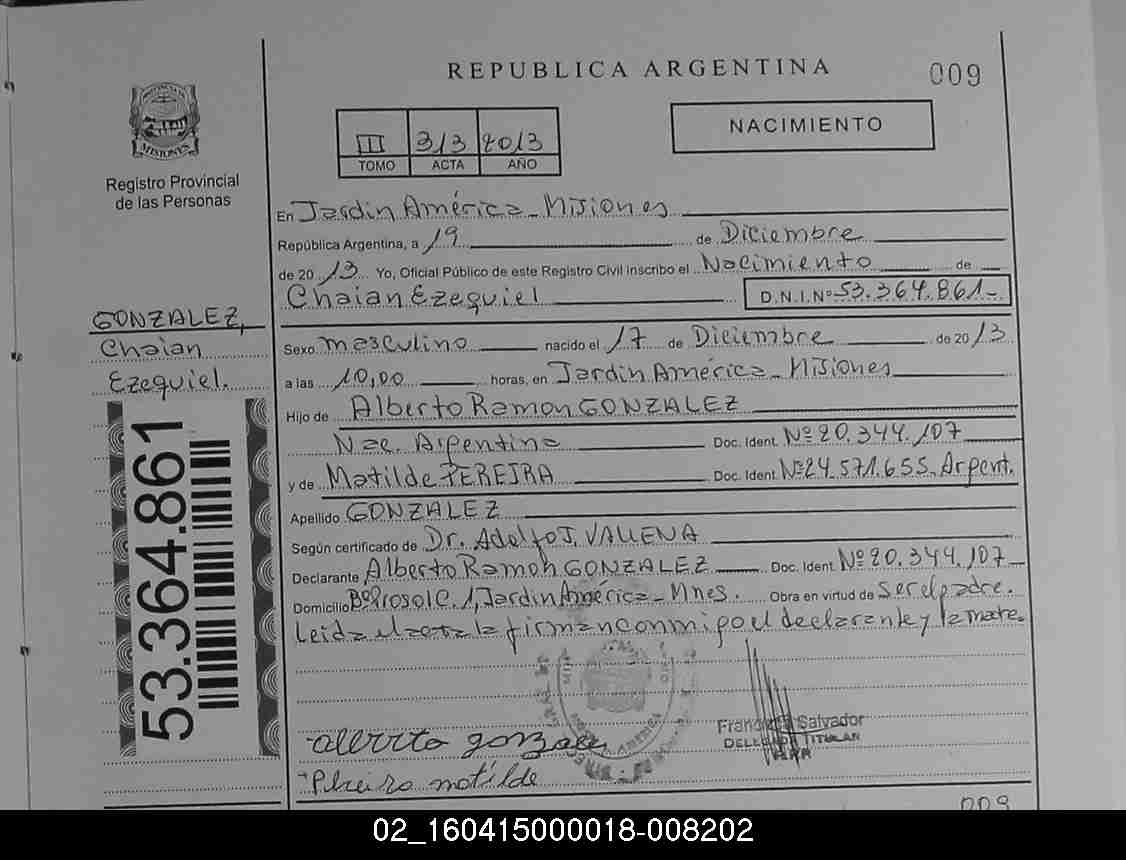 REPUBLICA ARGENTINA
009
PROVINCIA DE
MISIONES
Registro Provincial
de las Personas
III 313 2013
TOMO ACTA AÑO
NACIMIENTO
En Jardin América - Misiones
República Argentina, a 19 de Diciembre
de 2013 Yo, Oficial Público de este Registro Civil inscribo el Nacimiento de
Chaian Ezequiel D.N.I. Nº 53.364.861-
GONZALEZ,
Chaian
Ezequiel.
53.364.861
Sexo masculino nacido el 17 de Diciembre de 2013
a las 10,00 horas, en Jardin América - Misiones
Hijo de Alberto Ramon GONZALEZ
Nac. Argentina Doc. Ident. Nº 20.344.107
y de Matilde PEREIRA Doc. Ident. Nº 24.571.655- Argent.
Apellido GONZALEZ
Según certificado de Dr. Adolfo J. VALLENA
Declarante Alberto Ramon GONZALEZ Doc. Ident. Nº 20.344.107
Domicilio Bº Crosol C. 1, Jardin América - Mnes. Obra en virtud de ser el padre.
Leida el acta la firman conmigo el declarante y la madre.
Salvador
DELEGADO TITULAR
alberto gonzales
Pereira matilde
009
02_160415000018-008202